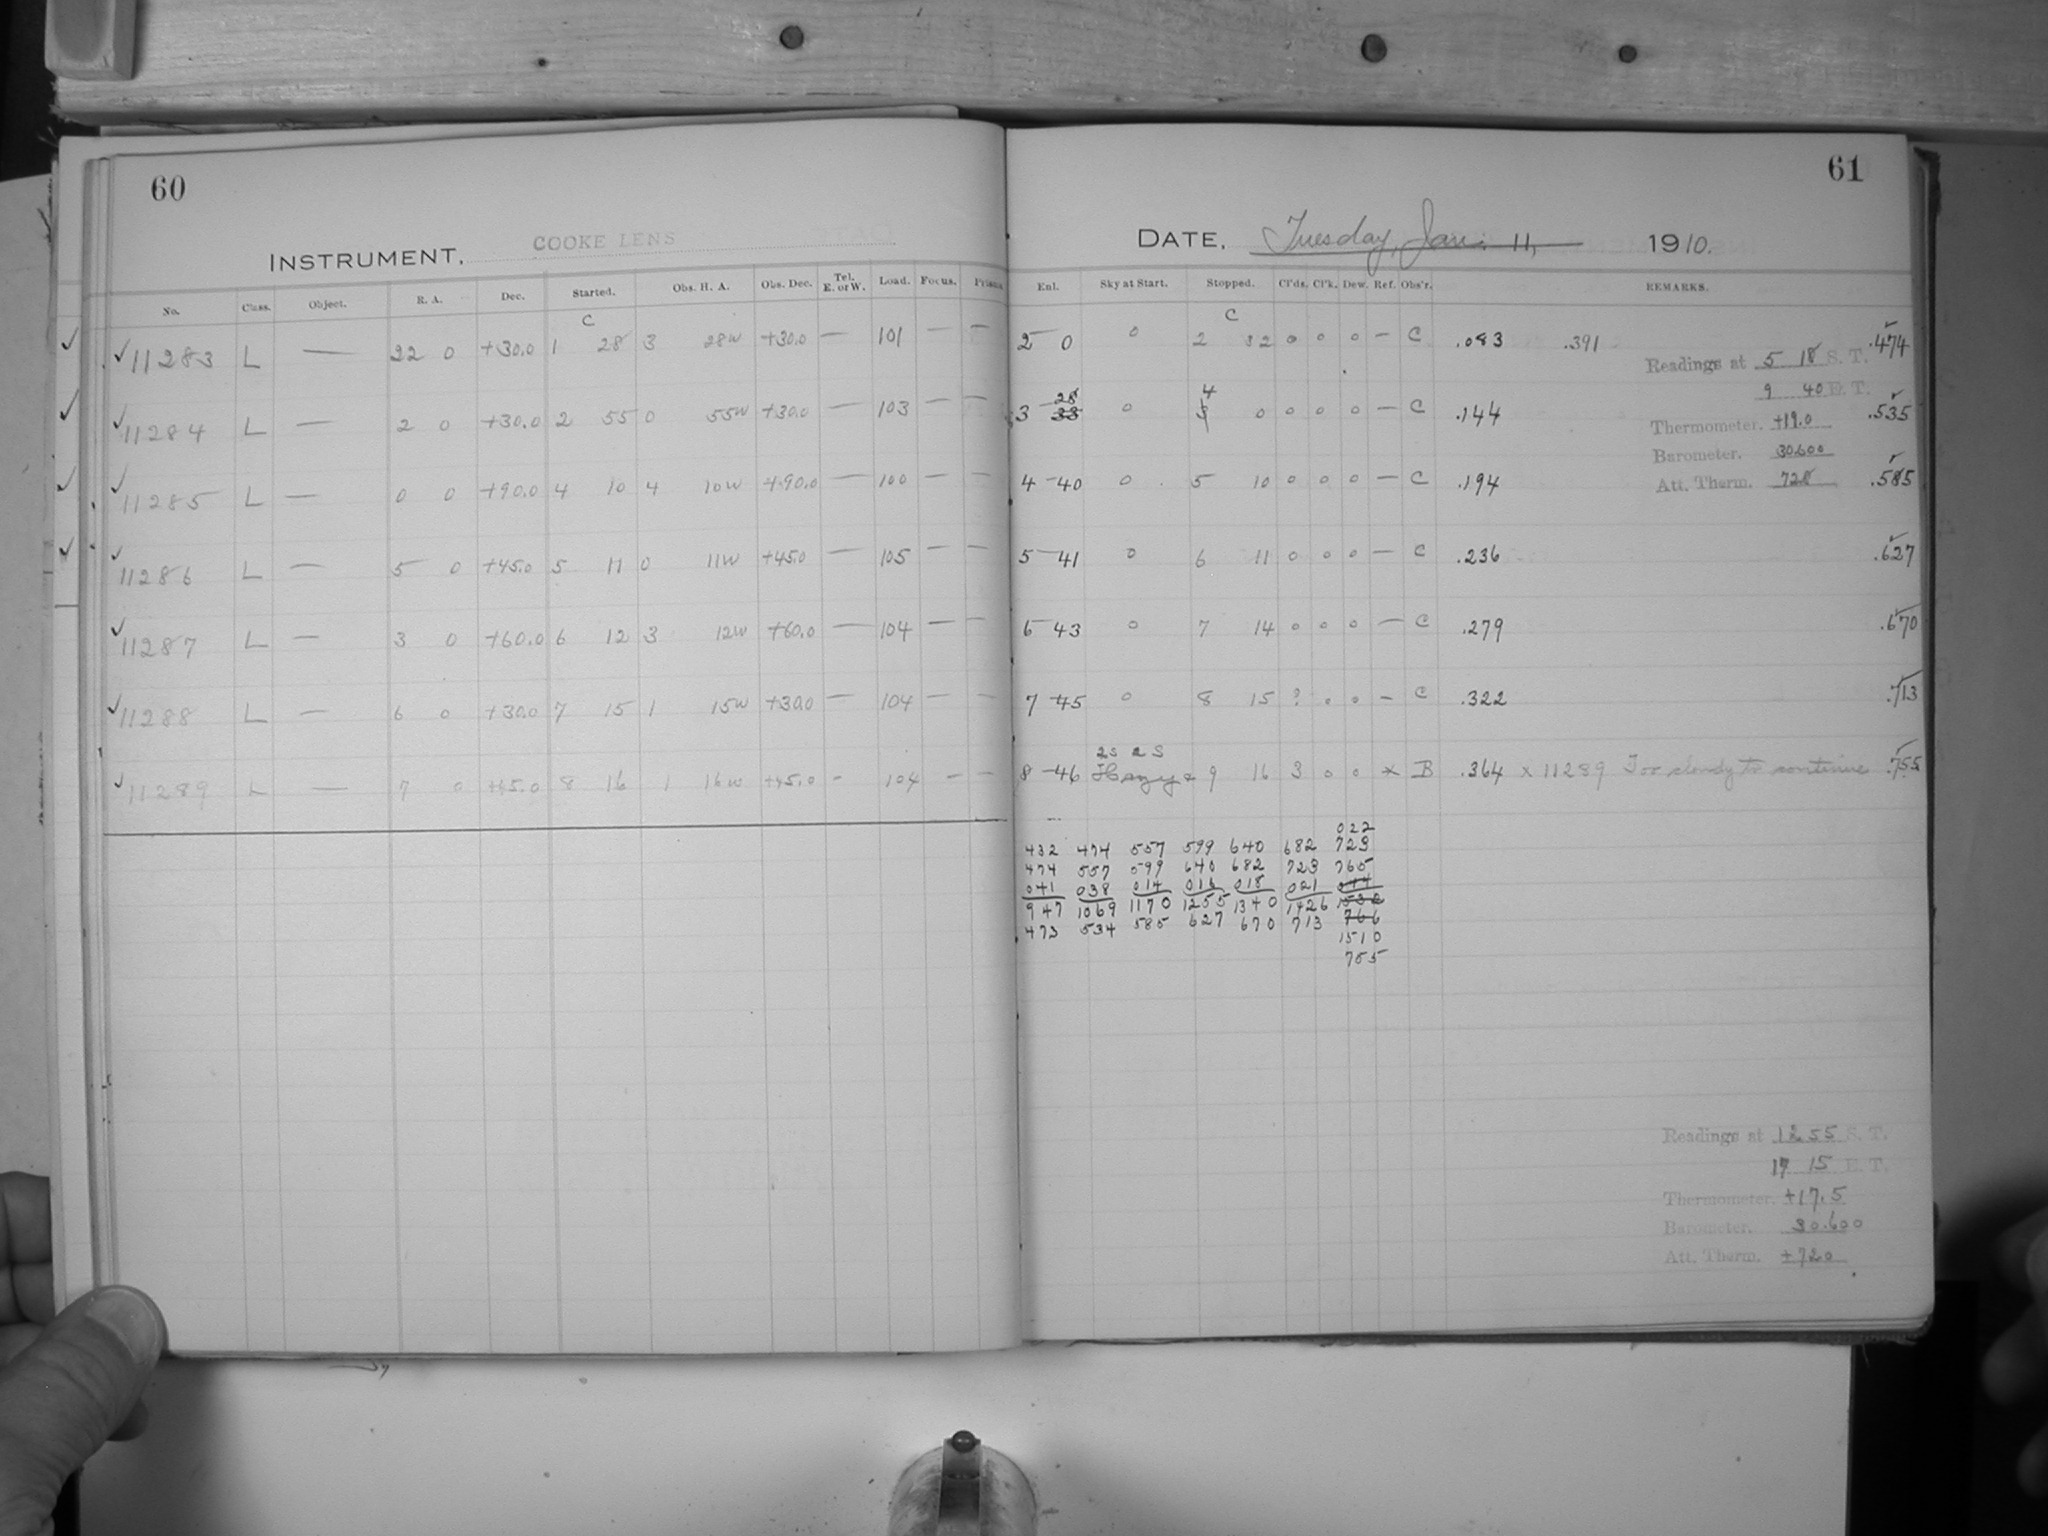 60
INSTRUMENT, COOKE LENS
No. Class. Object. R. A. Dec. Started. Obs. H. A. Obs. Dec. Tel. E. or W. Load. Focus. Prisms
C
✓ ✓ 11283 L — 22 0 +30.0 1 28 3 28W +30.0 — 101 — —
✓ ✓ 11284 L — 2 0 +30.0 2 55 0 55W +30.0 — 103 — —
✓ ✓ 11285 L — 0 0 +90.0 4 10 4 10W +90.0 — 100 — —
✓ ✓ 11286 L — 5 0 +45.0 5 11 0 11W +45.0 — 105 — —
✓ 11287 L — 3 0 +60.0 6 12 3 12W +60.0 — 104 — —
✓ 11288 L — 6 0 +30.0 7 15 1 15W +30.0 — 104 — —
✓ 11289 L — 7 0 +45.0 8 16 1 16W +45.0 - 104 — —
61
DATE, Tuesday, Jan. 11, 1910.
Enl. Sky at Start. Stopped. Cl'ds. Cl'k. Dew. Ref. Obs'r. REMARKS.
C
2 0 0 2 32 0 0 0 — C .083 .391 .474
Readings at 5 18 S. T.
9 40 E. T.
28 4
3 33 0 3 0 0 0 0 — C .144 .535
Thermometer. +19.0
Barometer. 30.600
4 40 0 5 10 0 0 0 — C .194 .585
Att. Therm. 728
5 41 0 6 11 0 0 0 — C .236 .627
6 43 0 7 14 0 0 0 — C .279 .670
7 45 0 8 15 ? 0 0 — C .322 .713
2S 2S
8 46 Hazy 9 16 3 0 0 x B .364 x 11289 Too cloudy to continue .755
022
432 474 557 599 640 682 723
474 557 599 640 682 723 765
041 038 014 016 018 021 044
947 1069 1170 1255 1340 1426 1532
473 534 585 627 670 713 766
1510
755
Readings at 12 55 S. T.
17 15 E. T.
Thermometer. +17.5
Barometer. 30.600
Att. Therm. +720